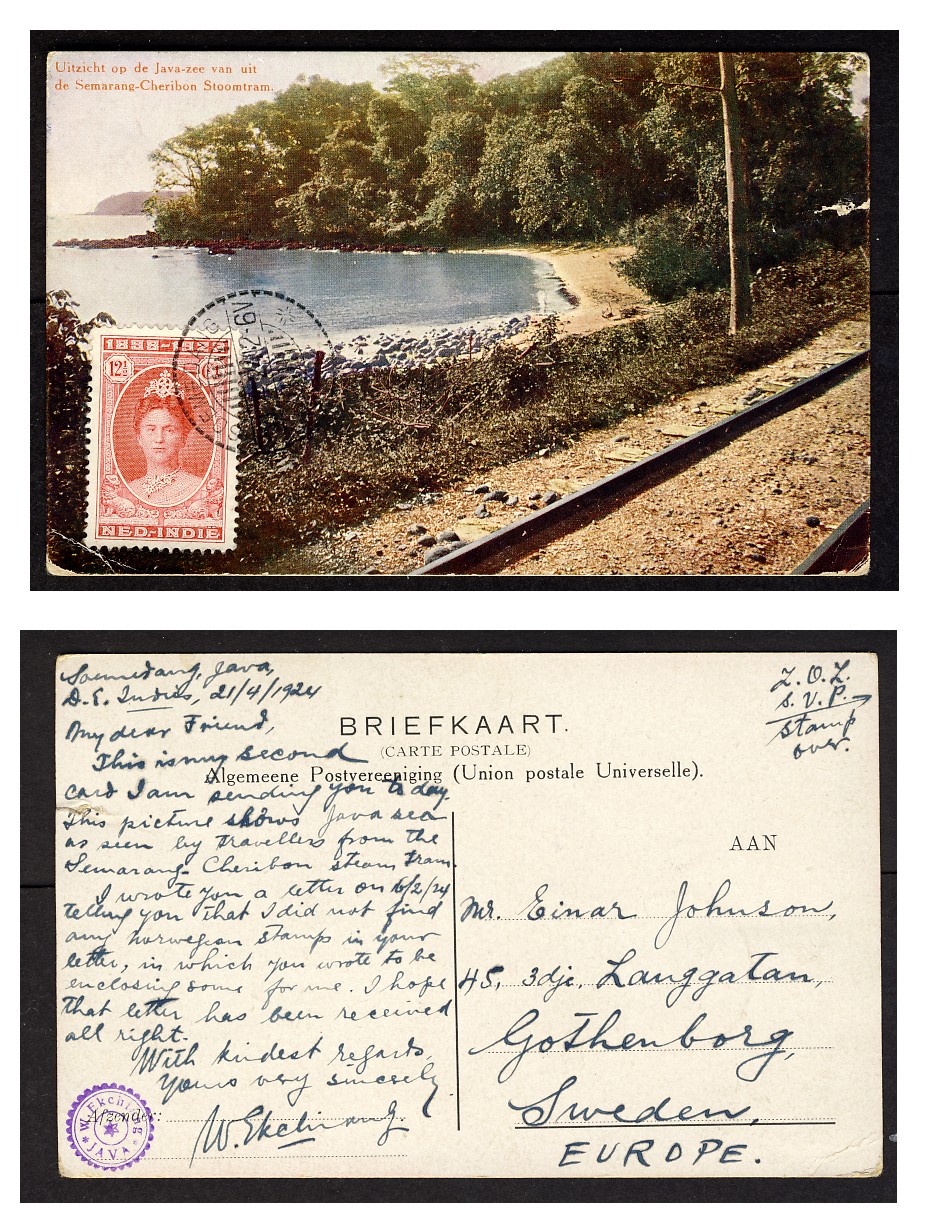 Uitzicht op de Java-zee van uit
de Semarang-Cheribon Stoomtram.
12½
NED-INDIË
Soemedang, Java,
D. E. Indies, 21/4/1924
My dear Friend,
This is my second
card I am sending you to day.
This picture shows Java sea
as seen by travellers from the
Semarang-Cheribon steam tram.
I wrote you a letter on 16/2/24
telling you that I did not find
any norwegian stamps in your
letter, in which you wrote to be
enclosing some for me. I hope
that letter has been received
all right.
With kindest regards,
Yours very sincerely
Afzender:
JAVA
BRIEFKAART.
(CARTE POSTALE)
Algemeene Postvereeniging (Union postale Universelle).
Z.O.Z.
S.V.P.
Stamp
over.
AAN
Mr. Einar Johnson,
45, 3dje. Langgatan,
Gothenborg,
Sweden,
EUROPE.